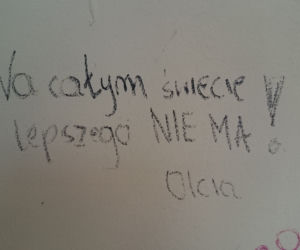 Na całym świecie
lepszego NIE MA!
Olcia